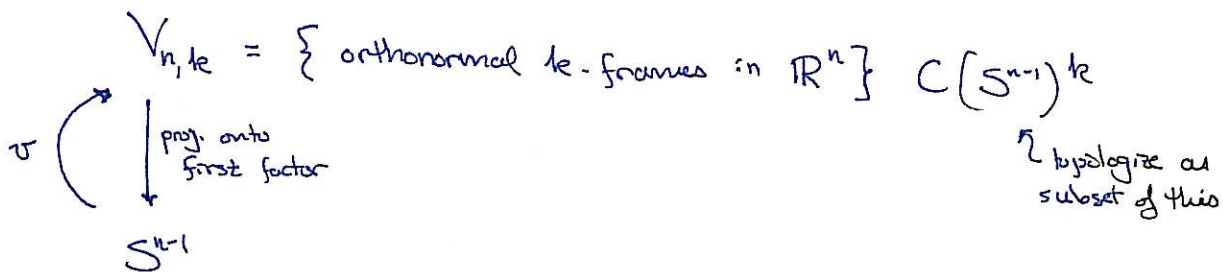 V_{n,k} = { orthonormal k-frames in ℝ^n} ⊂ (S^{n-1})^k
v
proj. onto
first factor
topologize as
subset of this
S^{n-1}